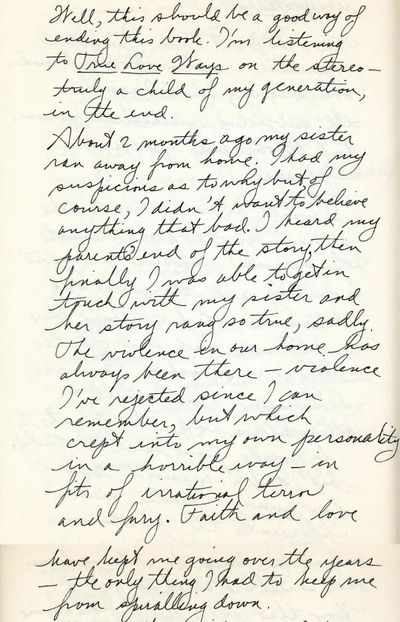 Well, this should be a good way of
ending this book. I'm listening
to True Love Ways on the stereo—
truly a child of my generation,
in the end.
About 2 months ago my sister
ran away from home. I had my
suspicions as to why but, of
course, I didn't want to believe
anything that bad. I heard my
parents' end of the story, then
finally I was able to get in
touch with my sister and
her story rang so true, sadly.
The violence in our home has
always been there – violence
I've rejected since I can
remember, but which
crept into my own personality
in a horrible way – in
fits of irrational terror
and fury. Faith and love
have kept me going over the years
– the only thing I had to keep me
from spiralling down.